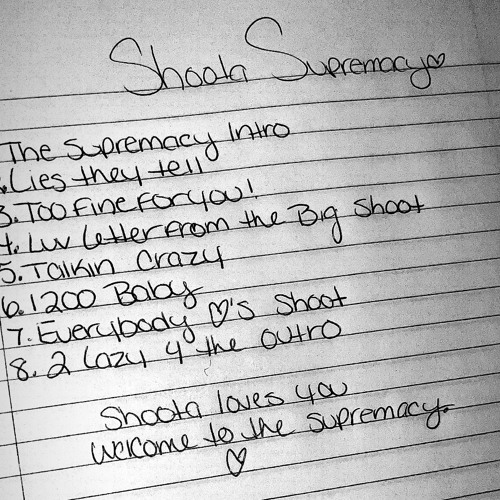 Shoota Supremacy♡
The Supremacy Intro
.Lies they tell
3. Too Fine For you!
4. Luv Letter From the Big Shoot
5. Talkin Crazy
6. 1200 Baby
7. Everybody ♡'s Shoot
8. 2 Lazy 4 the outro
Shoota loves you
welcome to the supremacy.
♡